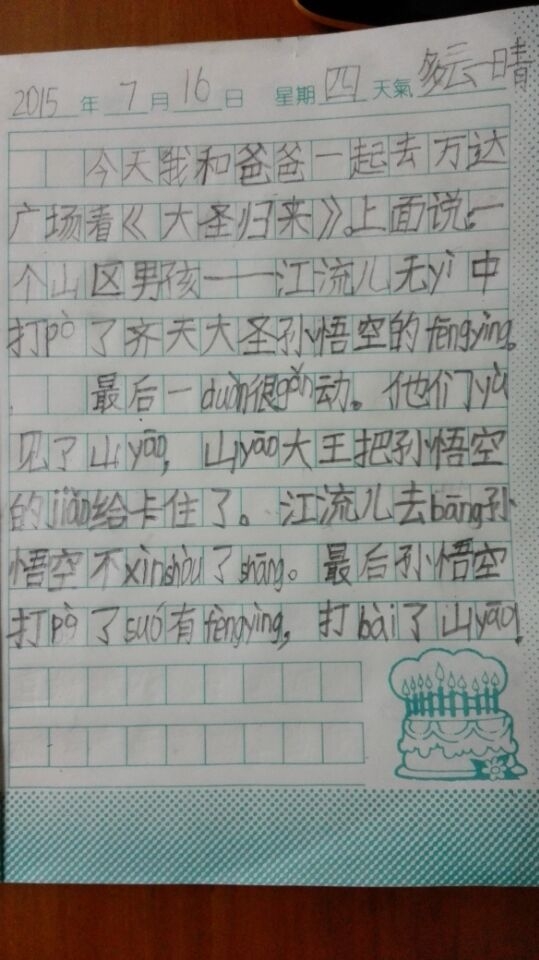 2015 年 7 月 16 日 星期 四 天氣 多云—晴
今天我和爸爸一起去万达
广场看《大圣归来》。上面说:一
个山区男孩——江流儿无yì中
打pò了齐天大圣孙悟空的fēngyìng。
最后一duàn很gǎn动。他们yù
见了山yāo,山yāo大王把孙悟空
的jiǎo给卡住了。江流儿去bāng孙
悟空不xìnshòu了shāng。最后孙悟空
打pò了suó有fèngyìng,打bài了山yāo!